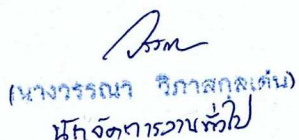 (นางวรรณา วิภาสกุลเด่น)
นักจัดการงานทั่วไป